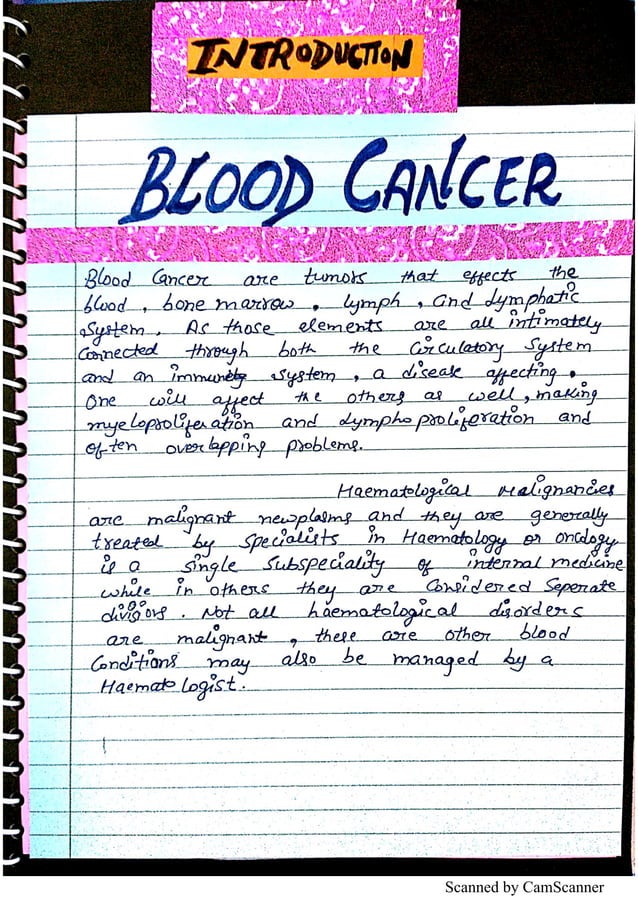 INTRODUCTION
BLOOD CANCER
Blood Cancer are tumors that effects the
blood, bone marrow, lymph, and lymphatic
System. As those elements are all intimately
Connected through both the Circulatory System
and an immunity System, a disease affecting.
One will affect the others as well, making
myeloproliferation and lymphoproliferation and
often overlapping problems.
Haematological Malignancies
are malignant newplasms and they are generally
treated by specialists in Haematology or oncology
is a single Subspeciality of internal medicine
while in others they are Considered Seperate
divisions. Not all haematological disorders
are malignant, these are other blood
Conditions may also be managed by a
Haematologist.
Scanned by CamScanner